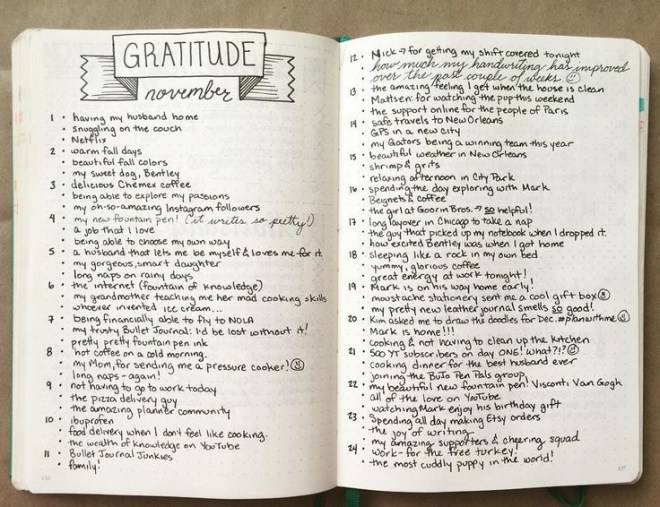 GRATITUDE
november
1 • having my husband home
• snuggling on the couch
• Netflix
2 • warm fall days
• beautiful fall colors
• my sweet dog, Bentley
3 • delicious Chemex coffee
• being able to explore my passions
• my oh-so-amazing Instagram followers
4 • my new fountain pen! (it writes so pretty!)
• a job that I love
• being able to choose my own way
5 • a husband that lets me be myself & loves me for it
• my gorgeous, smart daughter
• long naps on rainy days
6 • the internet (fountain of knowledge)
• my grandmother teaching me her mad cooking skills
• whoever invented ice cream...
7 • being financially able to fly to NOLA
• my trusty Bullet Journal: I'd be lost without it!
• pretty pretty fountain pen ink
8 • hot coffee on a cold morning.
• my Mom, for sending me a pressure cooker!
• long naps - again!
9 • not having to go to work today
• the pizza delivery guy
• the amazing planner community
10 • ibuprofen
• food delivery when I don't feel like cooking.
• the wealth of knowledge on YouTube
11 • Bullet Journal Junkies
• family!
12 • Nick → for getting my shift covered tonight
• how much my handwriting has improved
over the past couple of weeks. ☺
13 • the amazing feeling I get when the house is clean
• Mattsen: for watching the pup this weekend
• the support online for the people of Paris
14 • safe travels to New Orleans
• GPS in a new city
• my Gators being a winning team this year
15 • beautiful weather in New Orleans
• shrimp & grits
• relaxing afternoon in City Park
16 • spending the day exploring with Mark
• Beignets & coffee
• the girl at Goorin Bros. → so helpful!
17 • long layover in Chicago to take a nap
• the guy that picked up my notebook when I dropped it.
• how excited Bentley was when I got home
18 • sleeping like a rock in my own bed
• yummy, glorious coffee
• great energy at work tonight!
19 • Mark is on his way home early!
• moustache stationery sent me a cool gift box
• my pretty new leather journal smells so good!
20 • Kim asked me to draw the doodles for Dec. #planwithme
• Mark is home!!!
• cooking & not having to clean up the kitchen
21 • 500 YT subscribers on day ONE! what?!? ☺
• cooking dinner for the best husband ever
• joining the BuJo Pen Pals group
22 • my beautiful new fountain pen! Visconti Van Gogh
• all of the love on YouTube
• watching Mark enjoy his birthday gift
23 • Spending all day making Etsy orders
• the joy of writing
• my amazing supporters & cheering squad
24 • work - for the free turkey!
• the most cuddly puppy in the world!